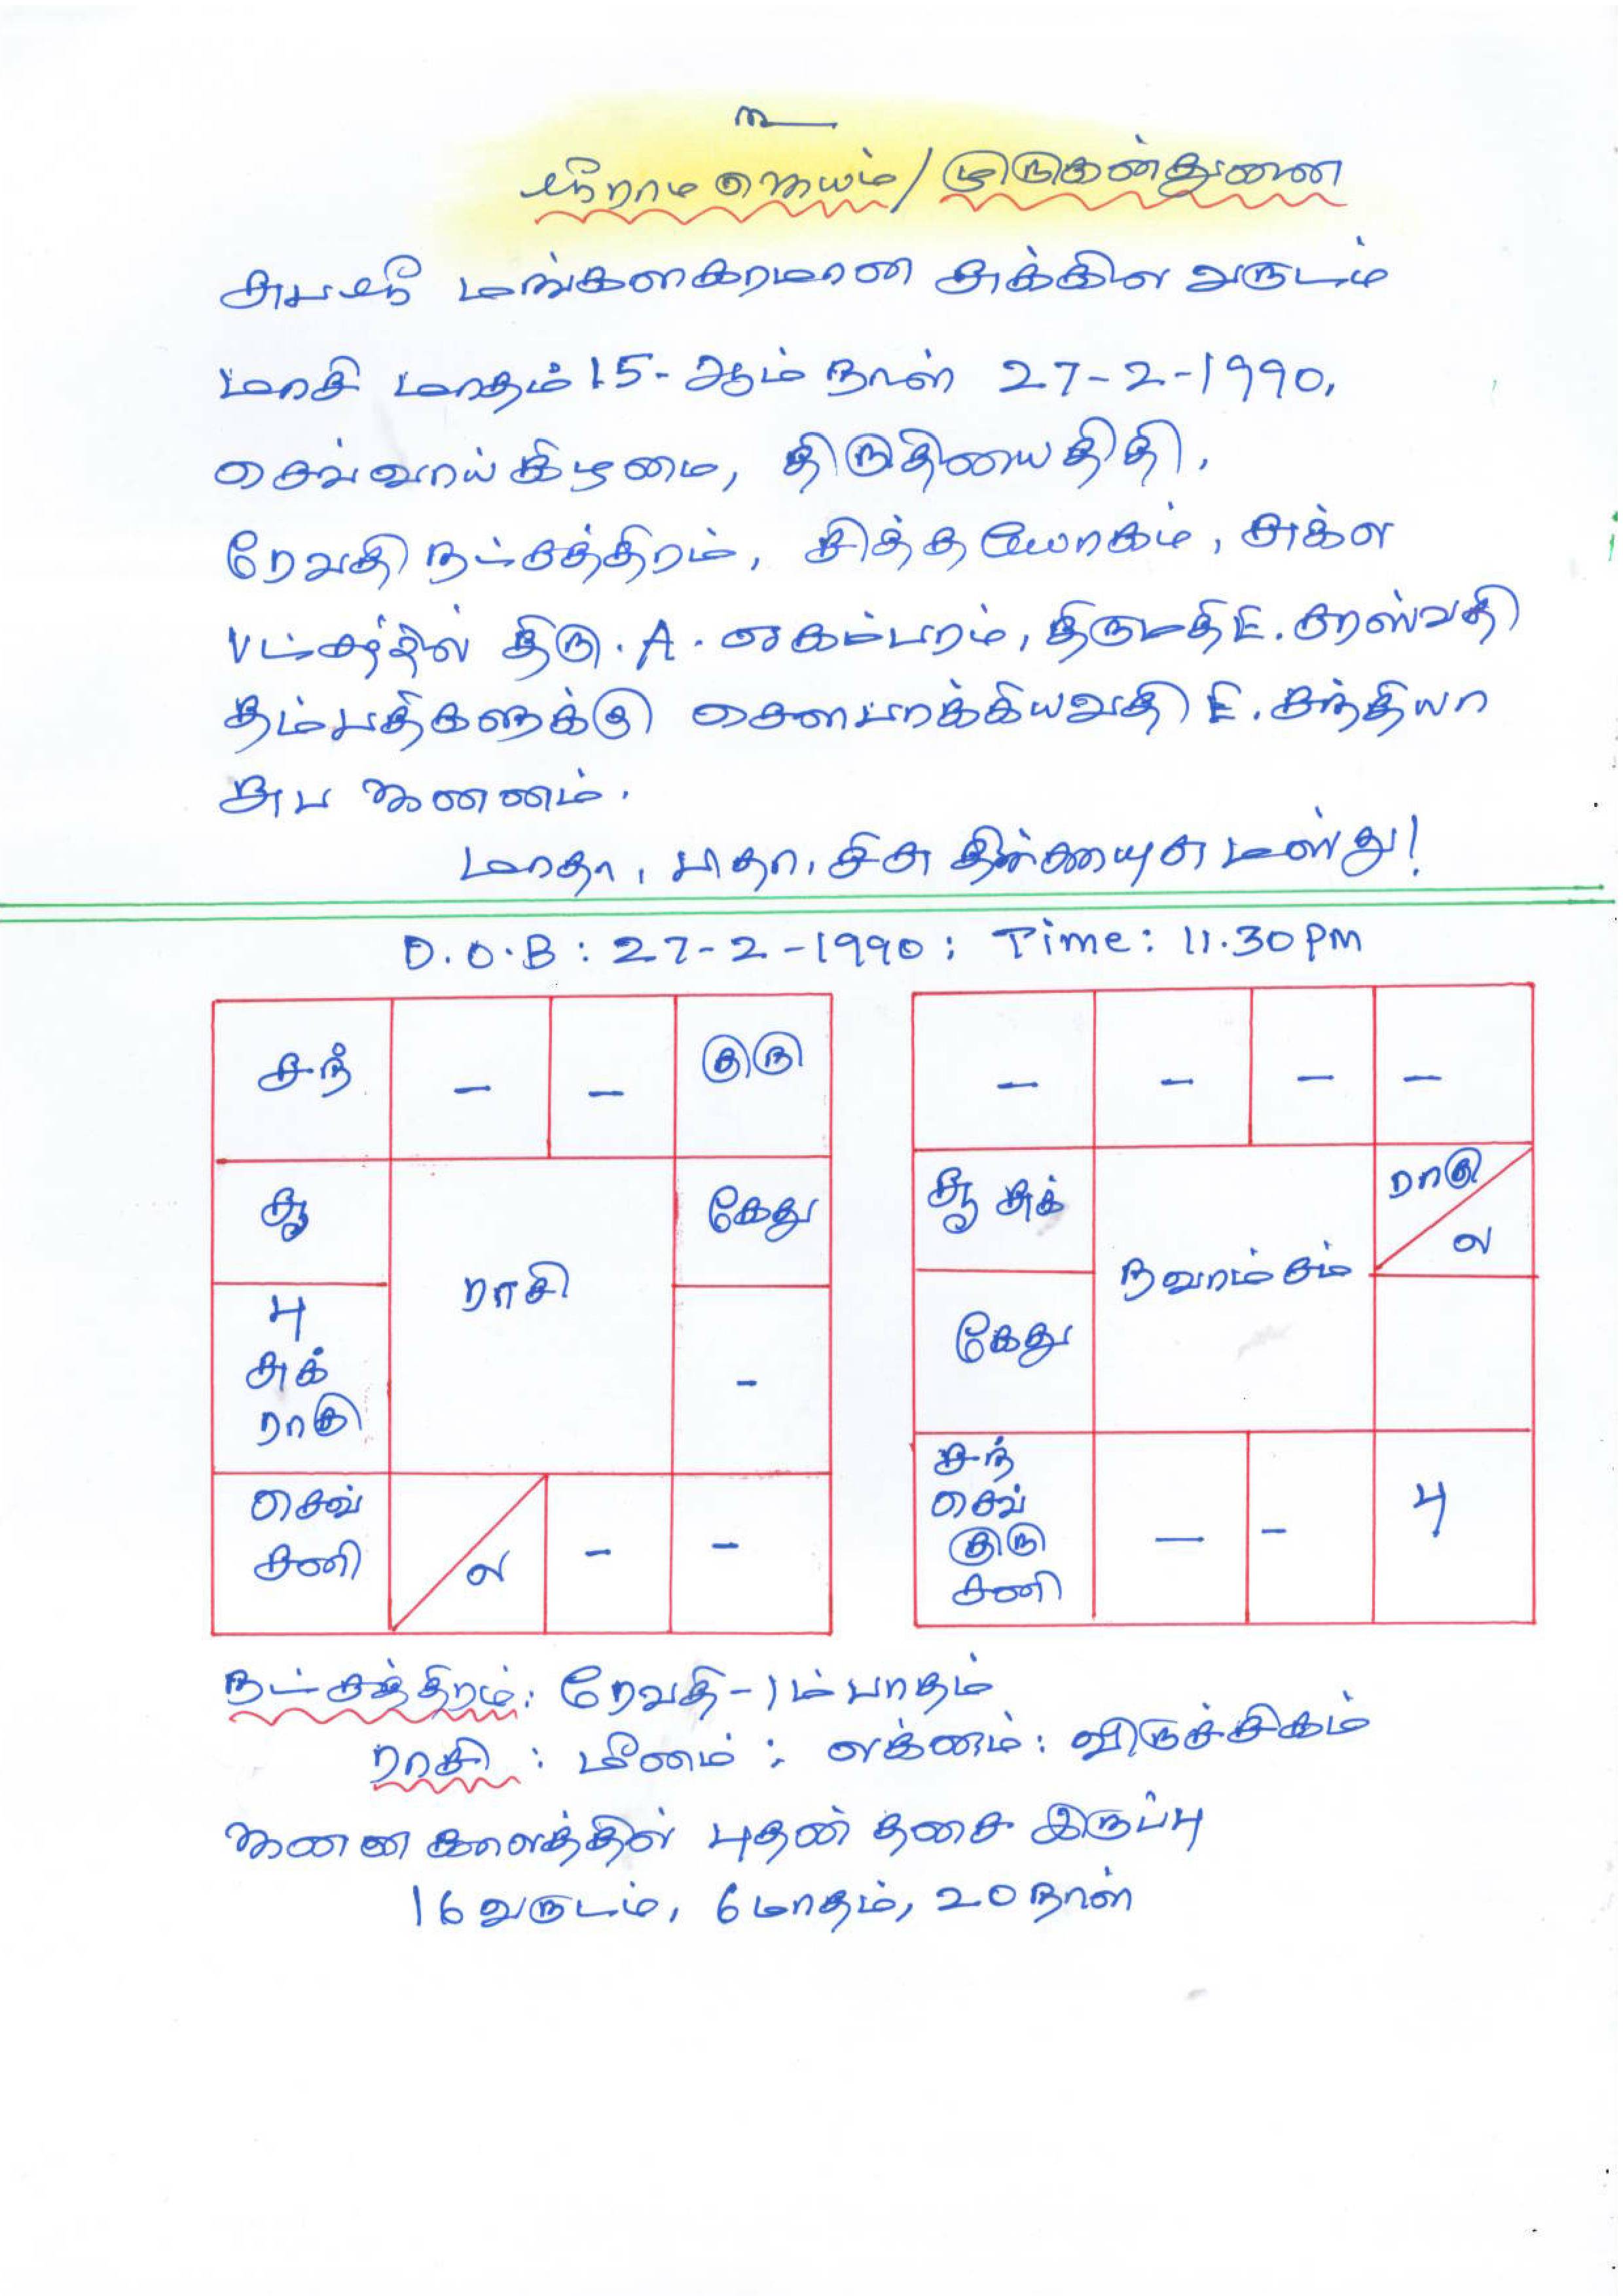 உ
ஸ்ரீராம ஜெயம் / முருகன் துணை
சுபஸ்ரீ மங்களகரமான சுக்கில வருடம்
மாசி மாதம் 15-ஆம் நாள் 27-2-1990,
செவ்வாய்கிழமை, திருதியை திதி,
ரேவதி நட்சத்திரம், சித்த யோகம், சுக்ல
திரு. A. ஏகம்பரம், திருமதி E. சரஸ்வதி
தம்பதிகளுக்கு சௌபாக்கியவதி E. சந்தியா
சுப ஜனனம்.
மாதா, பிதா, சிசு
D.O.B : 27-2-1990 ; Time : 11.30 PM
சந் - - குரு
- - - -
சூ கேது
சூ சுக் ராகு ல
ராசி
நவாம்சம்
பு சுக் ராகு -
கேது
செவ் சனி ல - -
சந் செவ் குரு சனி - - பு
நட்சத்திரம் : ரேவதி - 1ம் பாதம்
ராசி : மீனம் : லக்னம் : விருச்சிகம்
ஜனன காலத்தில் புதன் தசை இருப்பு
16 வருடம், 6 மாதம், 20 நாள்